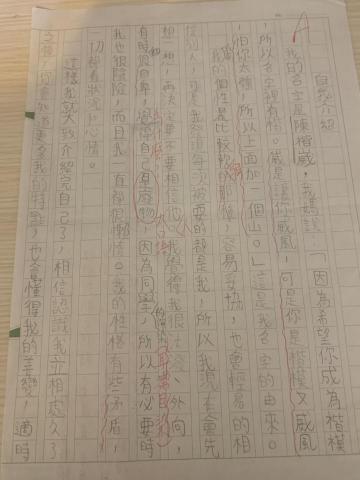 A
自我介紹
我的名字是陳楷崴，我媽說：「因為希望你成為楷模
，所以名字裡有楷。崴是讓你威風，可是你是楷模又威風
，怕你太強，所以上面加一個山。」這是我名字的由來。
我的個性是比較軟的那種，容易妥協，也會輕易的相
信別人，可是我發現每次被耍的都是我，所以我現在會先
想一想，再去 要不要相信他人。我覺得我很 、外向，
有時很自卑，覺得自己是廢物，因為同學，所以有必要時
我也很陰險，而且我一直都很懶惰。我的性格有些矛盾，
一切都看狀況和心情。
這樣我就大致介紹完自己了，相信認識我並相處久了
之後，你會知道更多我的特點，也會懂得我的善變，適時